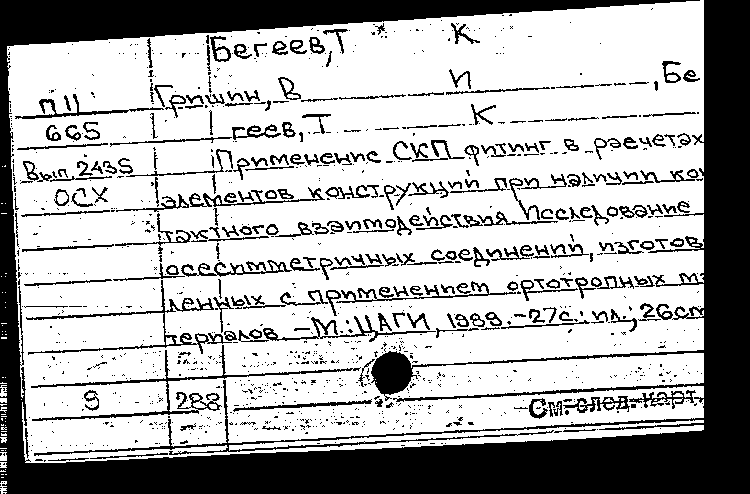 Бегеев, Т К
П 11 Гришин, В И , Бе
665 геев, Т К
Вып. 2435 Применение СКП фитинг в расчетах
ОСХ элементов конструкций при наличии кон
тактного взаимодействия. Исследование
осесимметричных соединений, изготов
ленных с применением ортотропных ма
териалов. – М.: ЦАГИ, 1989. – 27с.: ил.; 26cm
9 288
См. след. карт.